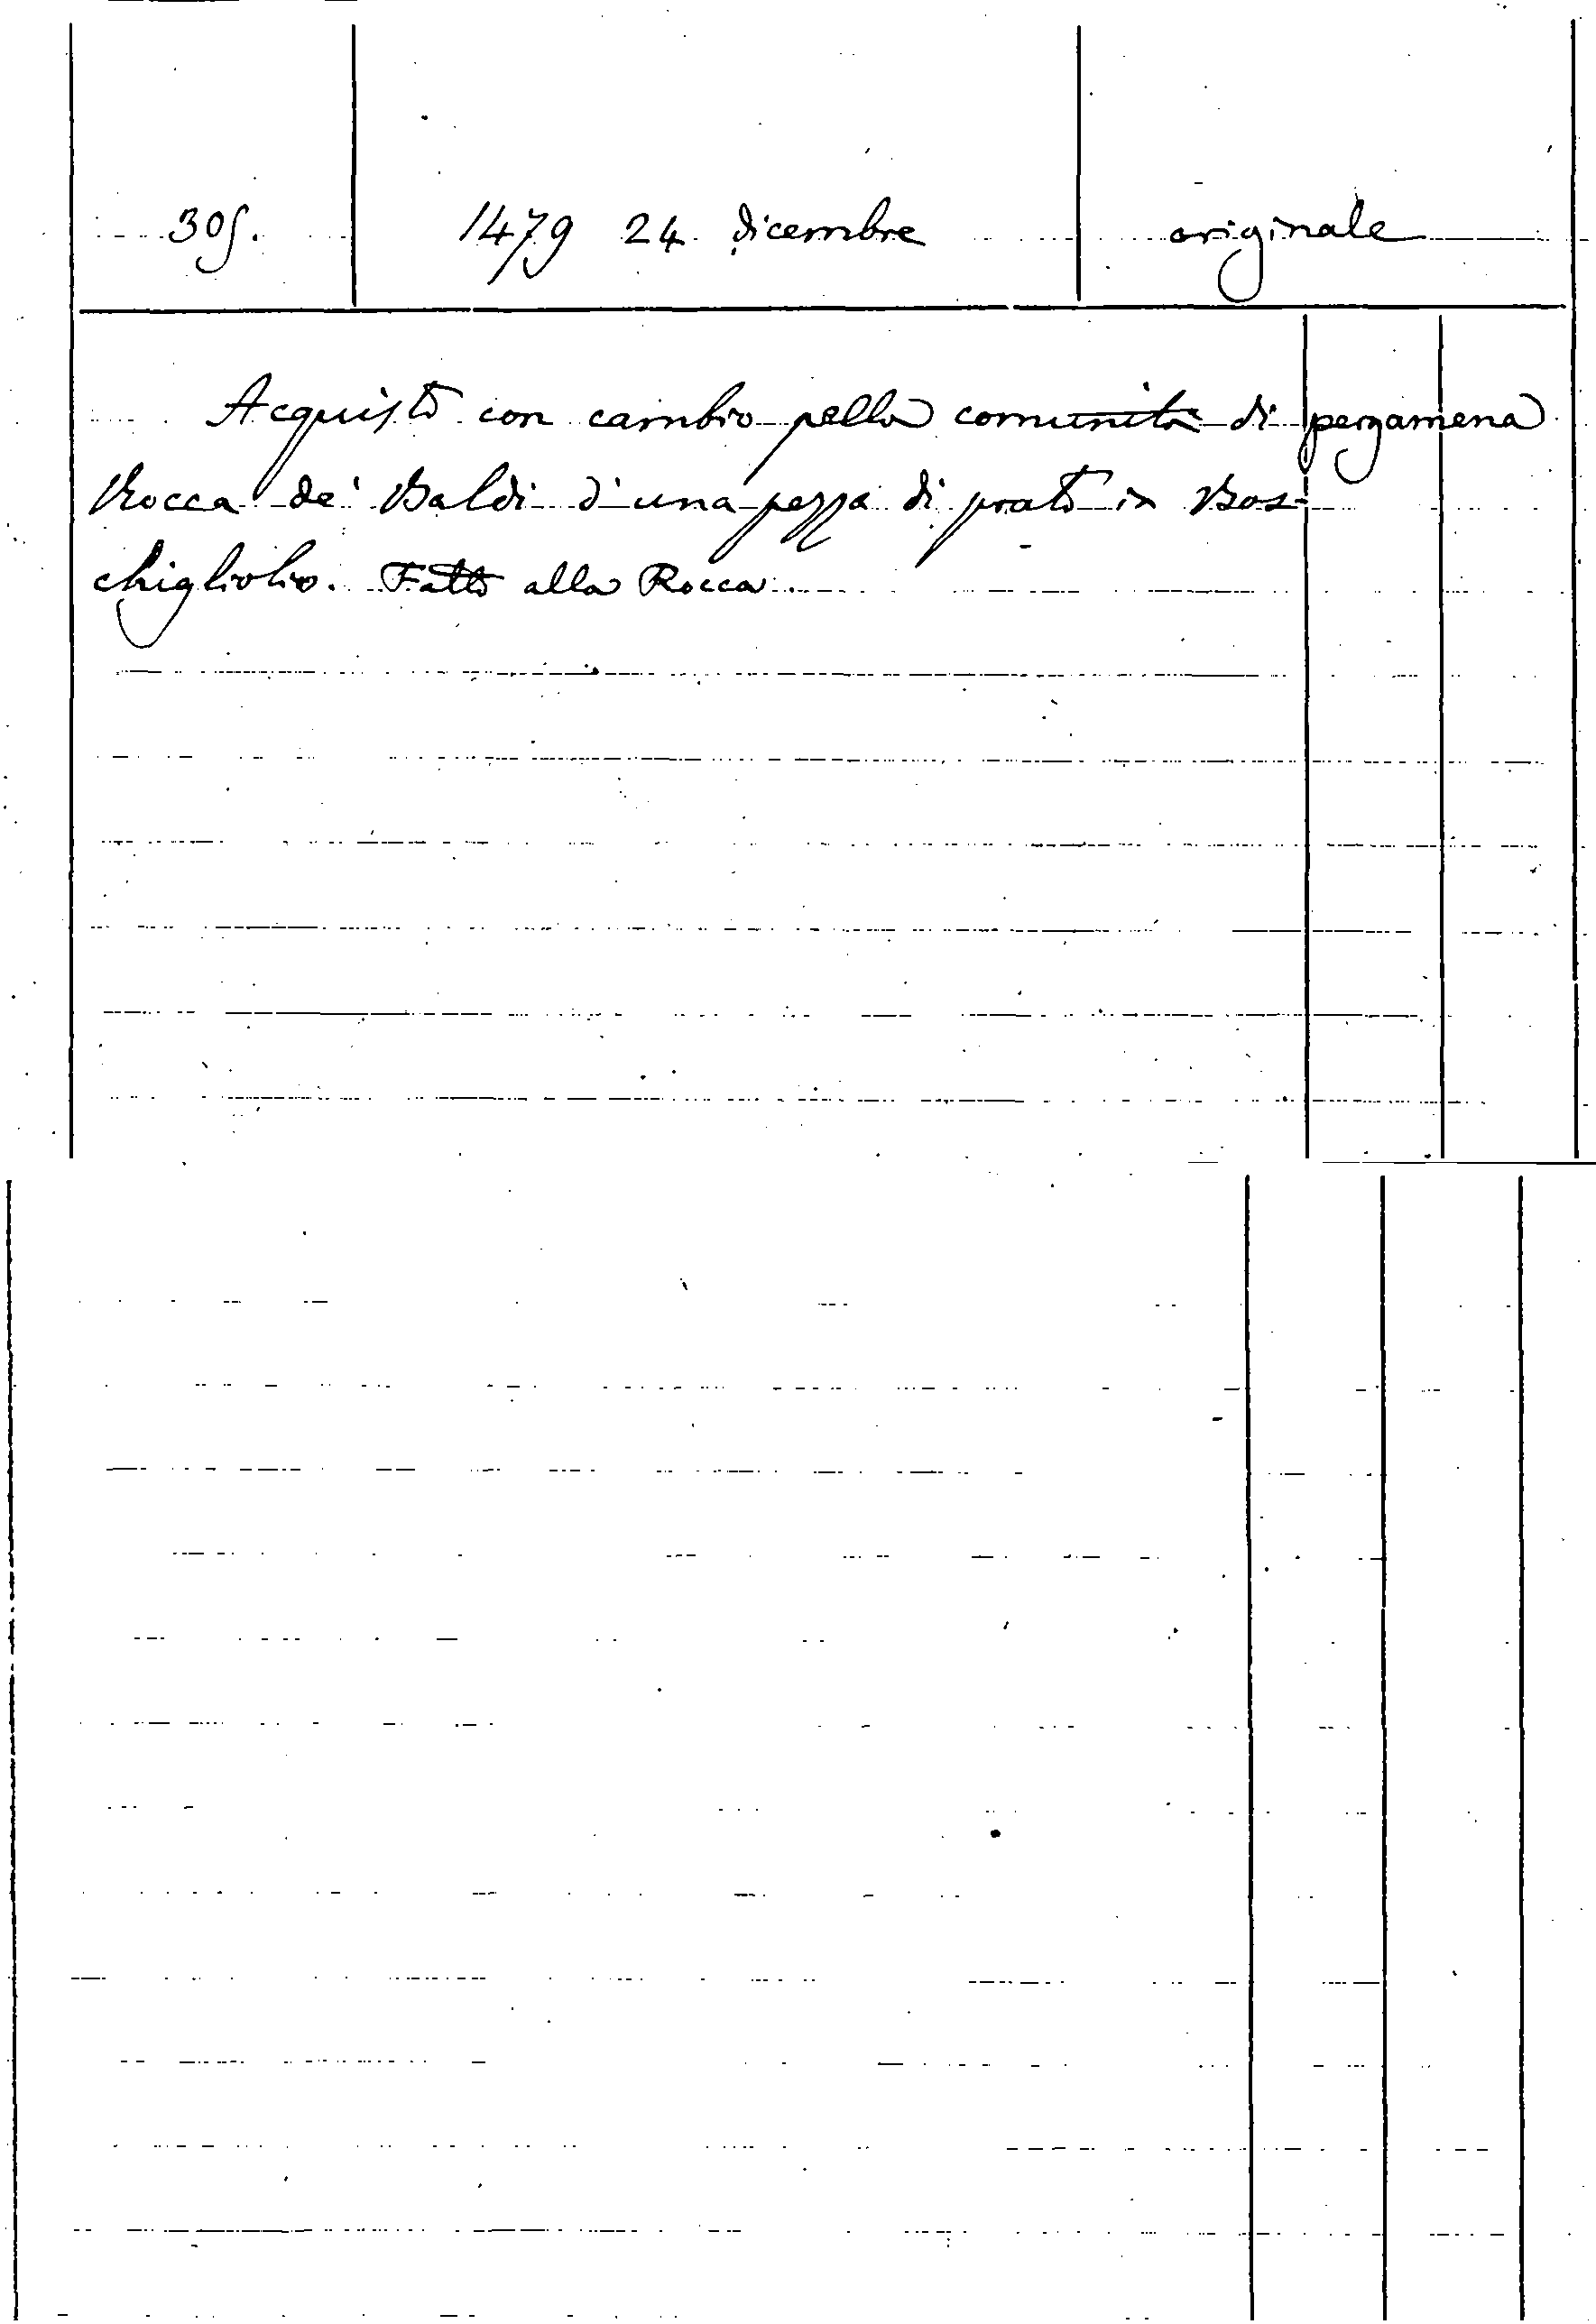 305. 1479 24 dicembre originale
Acquisto con cambio pella comunità di pergamena
Rocca de' Baldi d'una pezza di prato in Bos-
chigliolio. Fatto alla Rocca.